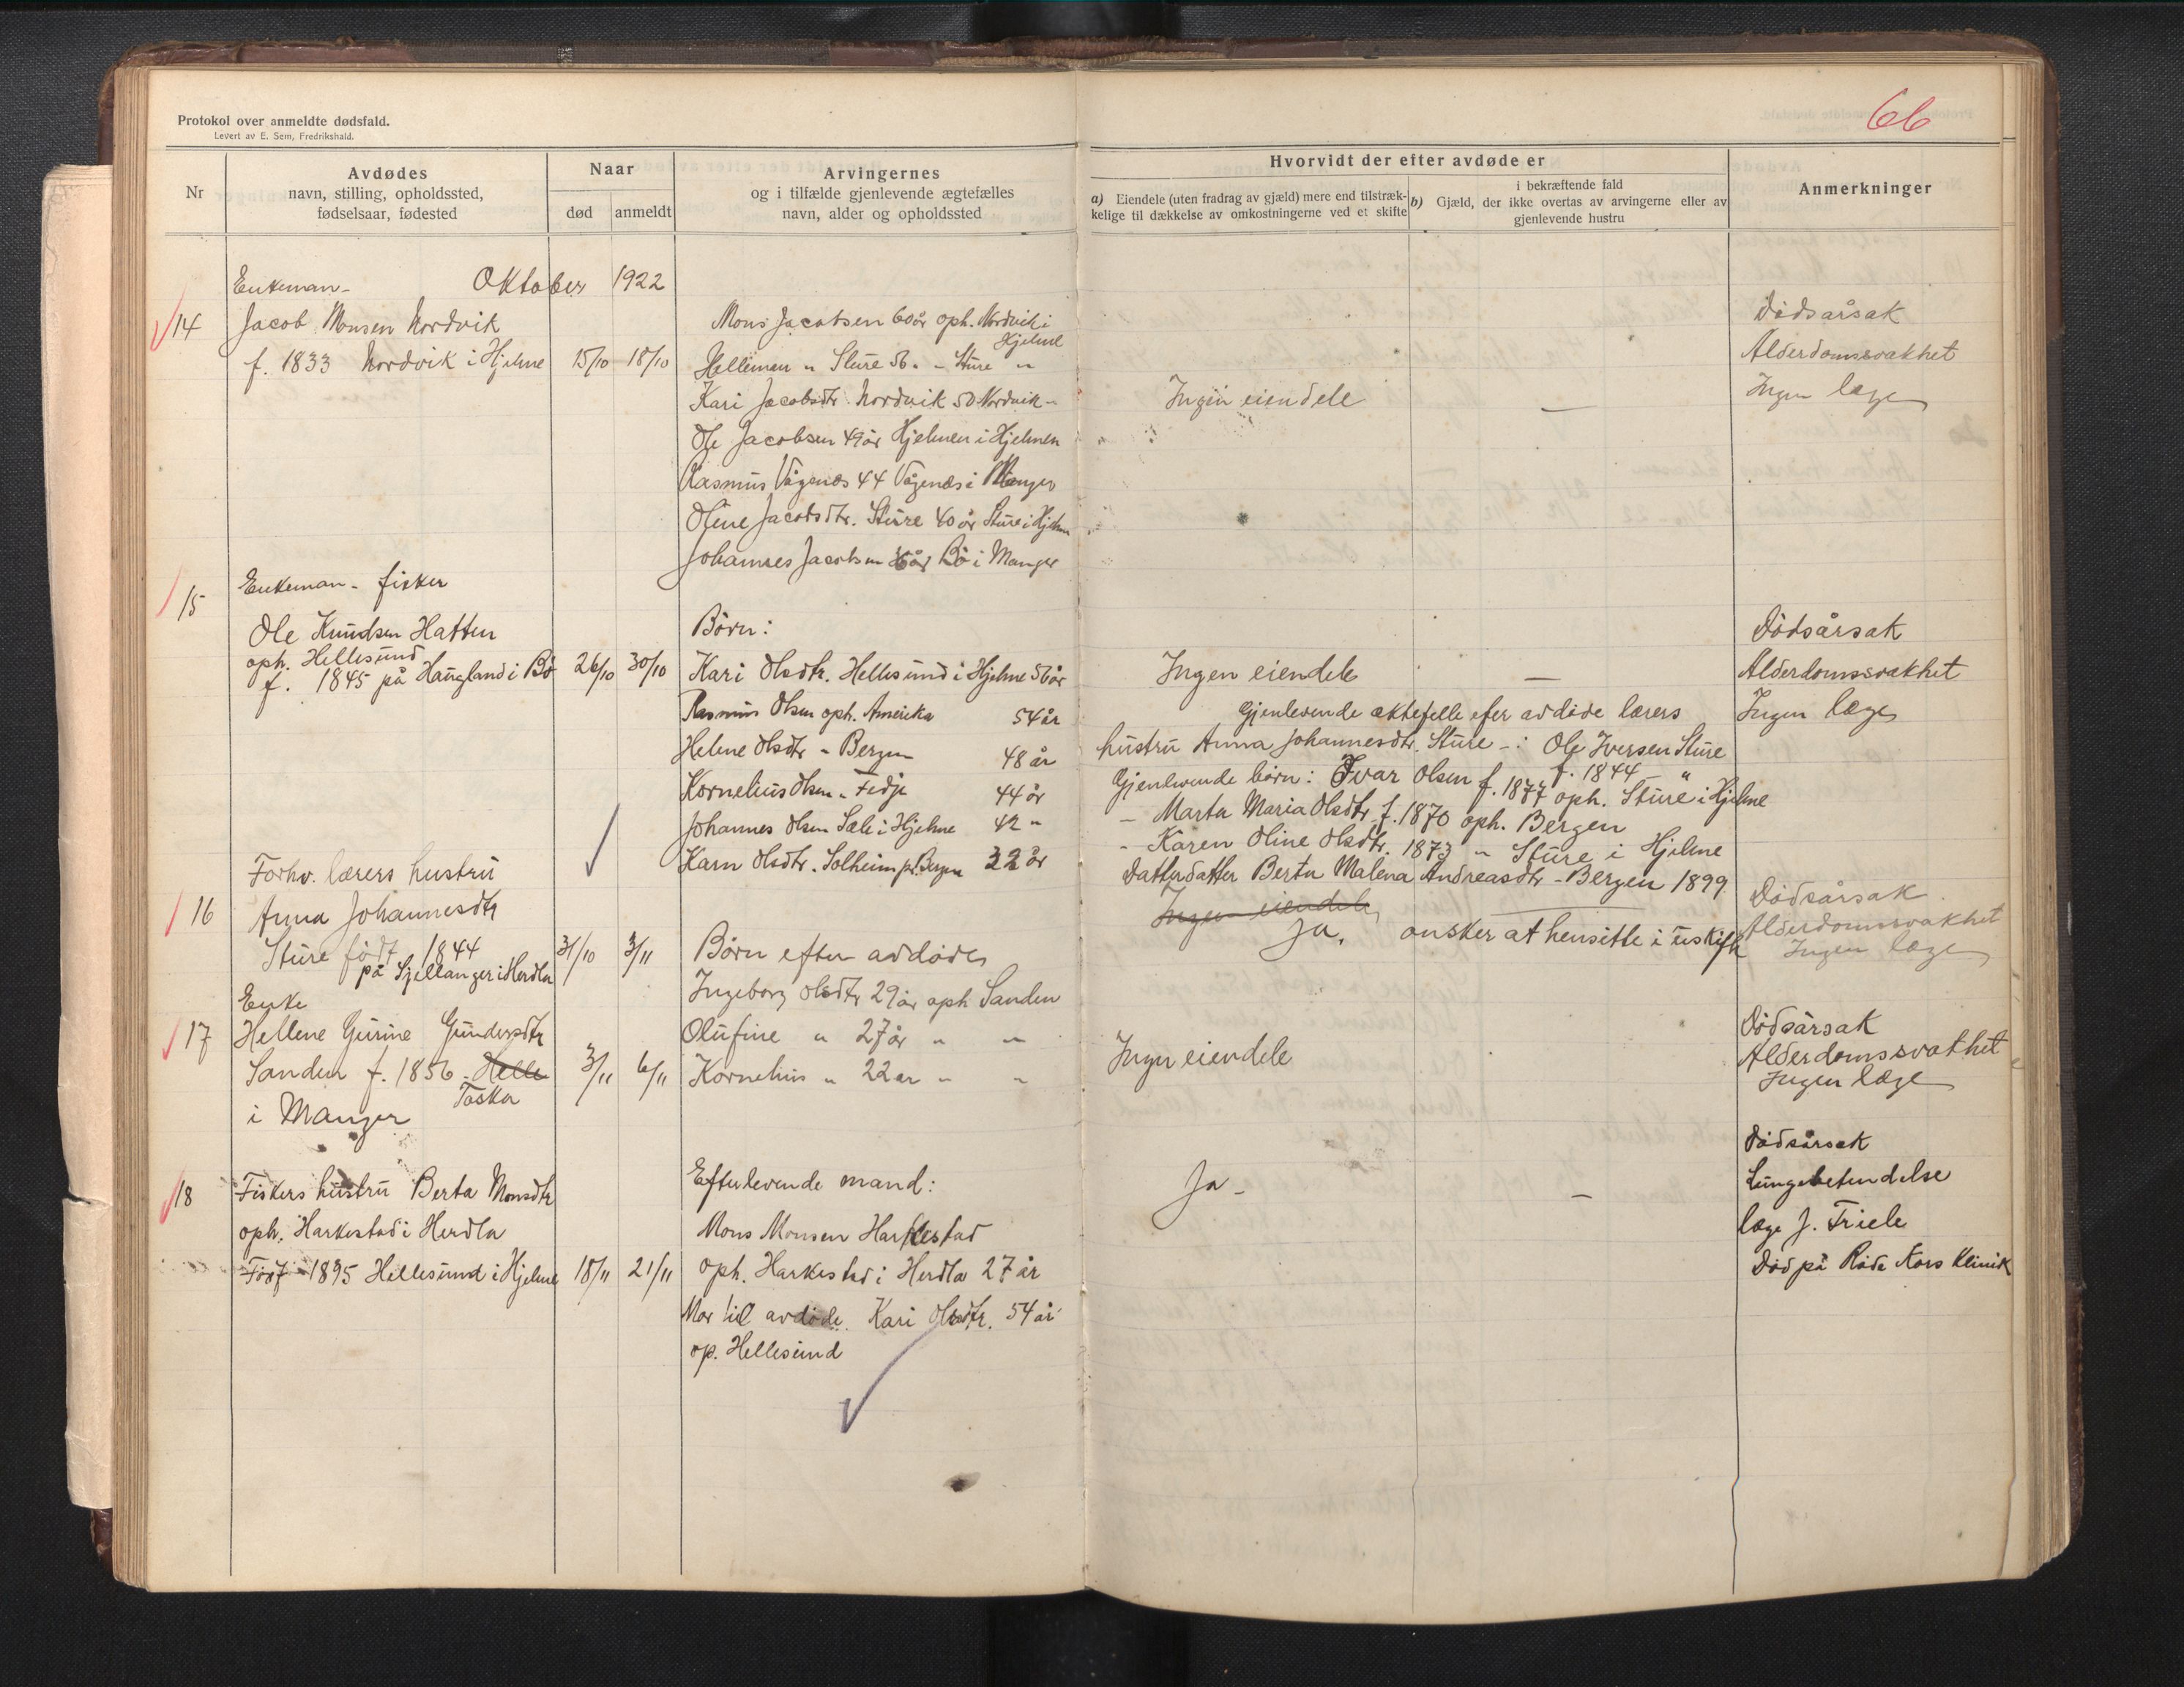 Protokol over anmeldte dødsfald.
Levert av E. Sem, Fredrikshald.
66
Nr
Avdødes
navn, stilling, opholdssted,
fødselsaar, fødested
Naar
død
anmeldt
Arvingernes
og i tilfælde gjenlevende ægtefælles
navn, alder og opholdssted
Hvorvidt der efter avdøde er
a) Eiendele (uten fradrag av gjæld) mere end tilstræk-
kelige til dækkelse av omkostningerne ved et skifte
i bekræftende fald
b) Gjæld, der ikke overtas av arvingerne eller av
gjenlevende hustru
Anmerkninger
Oktober 1922
Enkeman -
14 Jacob Monsen Nordvik
f. 1833 Nordvik i Hjelme 15/10 18/10
Mons Jacobsen 60 år oph. Nordvik i
Hjelme
Hellemen " Sture 56 " - Sture "
Kari Jacobsdtr. Nordvik 50 Nordvik "
Ole Jacobsen 49 år Hjelmen i Hjelmen
Rasmus Vågenes 44 Vågenes i Manger
Oline Jacobsdtr. Sture 40 år Sture i Hjelme
Johannes Jacobsen 36 år Bö i Manger
Ingen eiendele —
Dödsårsak
Alderdomssvakhet
Ingen læge
15 Enkeman - fisker
Ole Knudsen Hatten
oph. Hellesund
f. 1845 på Haugland i Bö 26/10 30/10
Börn:
Kari Olsdtr. Hellesund i Hjelme 56 år
Rasmus Olsen oph. Amerika 54 år
Helene Olsdtr " Bergen 48 år
Kornelius Olsen " Fedje 44 år
Johannes Olsen Sæle i Hjelme 42 "
Karn Olsdtr. Solheim pr. Bergen 32 år
Ingen eiendele —
Dödsårsak
Alderdomssvakhet
Ingen læge
Gjenlevende ektefelle efer avdöde lærers
hustru Anna Johannesdtr. Sture -: Ole Iversen Sture
f. 1844 "
Gjenlevende börn: Ivar Olsen f. 1877 oph. Sture i Hjelme
- Marta Maria Olsdtr f. 1870 oph. Bergen
- Karen Oline Olsdtr. 1873 " Sture i Hjelme
Datterdatter Berta Malena Andreasdtr - Bergen 1899
Forhv. lærers hustru
16 Anna Johannesdtr
Sture födt 1844
på Sjellanger i Herdla 31/10 3/11
Ingen eiendele
Ja, ønsker at hensitte i uskifte
Dödsårsak
Alderdomssvakhet
Ingen læge
Enke
17 Hellene Gurine Gundersdtr
Sanden f. 1856 - Helle
Toska
i Manger
3/11 6/11
Börn efter avdöde
Ingeborg Olsdtr 29 år oph Sanden
Olufine " 27 år " "
Kornelius " 22 år " "
Ingen eiendele
Dödsårsak
Alderdomssvakhet
Ingen læge
18 Fiskers hustru Berta Monsdtr
oph. Harkestad i Herdla
Född 1895 Hellesund i Hjelme 18/11 21/11
Efterlevende mand:
Mons Monsen Harkestad
oph. Harkestad i Herdla 27 år
Mor til avdöde. Kari Olsdtr. 54 år
op. Hellesund
Ja - —
Dödsårsak
Lungebetendelse
læge J. Friele
Död på Röde Kors Klinik